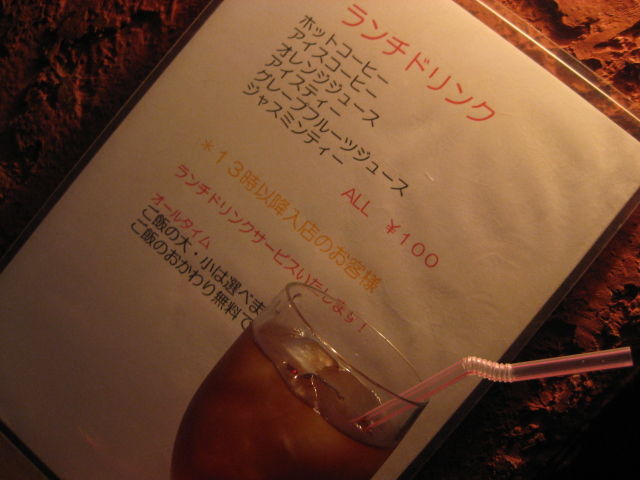 ランチドリンク
ホットコーヒー
アイスコーヒー
オレンジジュース
アイスティー
グレープフルーツジュース
ジャスミンティー
ALL ¥100
*13時以降入店のお客様
ランチドリンクサービスいたします!
オールタイム
ご飯の大・小は選べま
ご飯のおかわり無料で